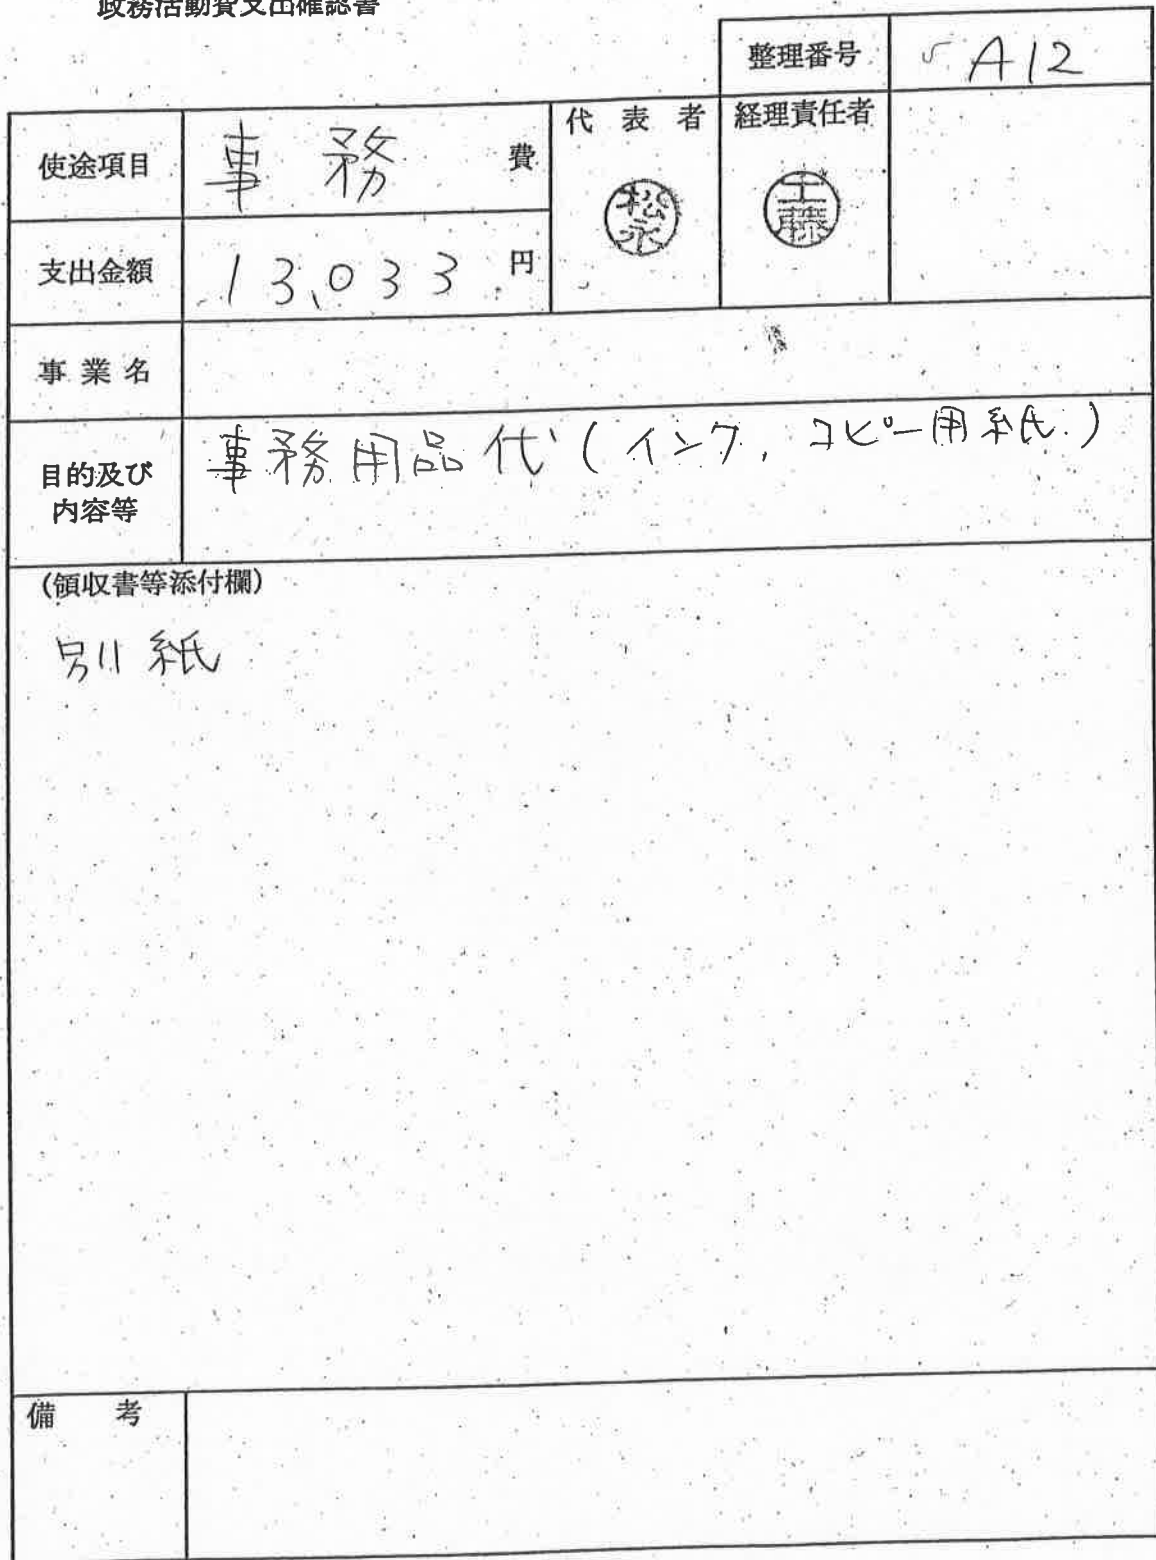 政務活動費支出確認書
整理番号 A12
使途項目 事務 費
代表者 松永
経理責任者 工藤
支出金額 13,033 円
事業名
目的及び内容等 事務用品代(インク, コピー用紙)
(領収書等添付欄)
別紙
備考